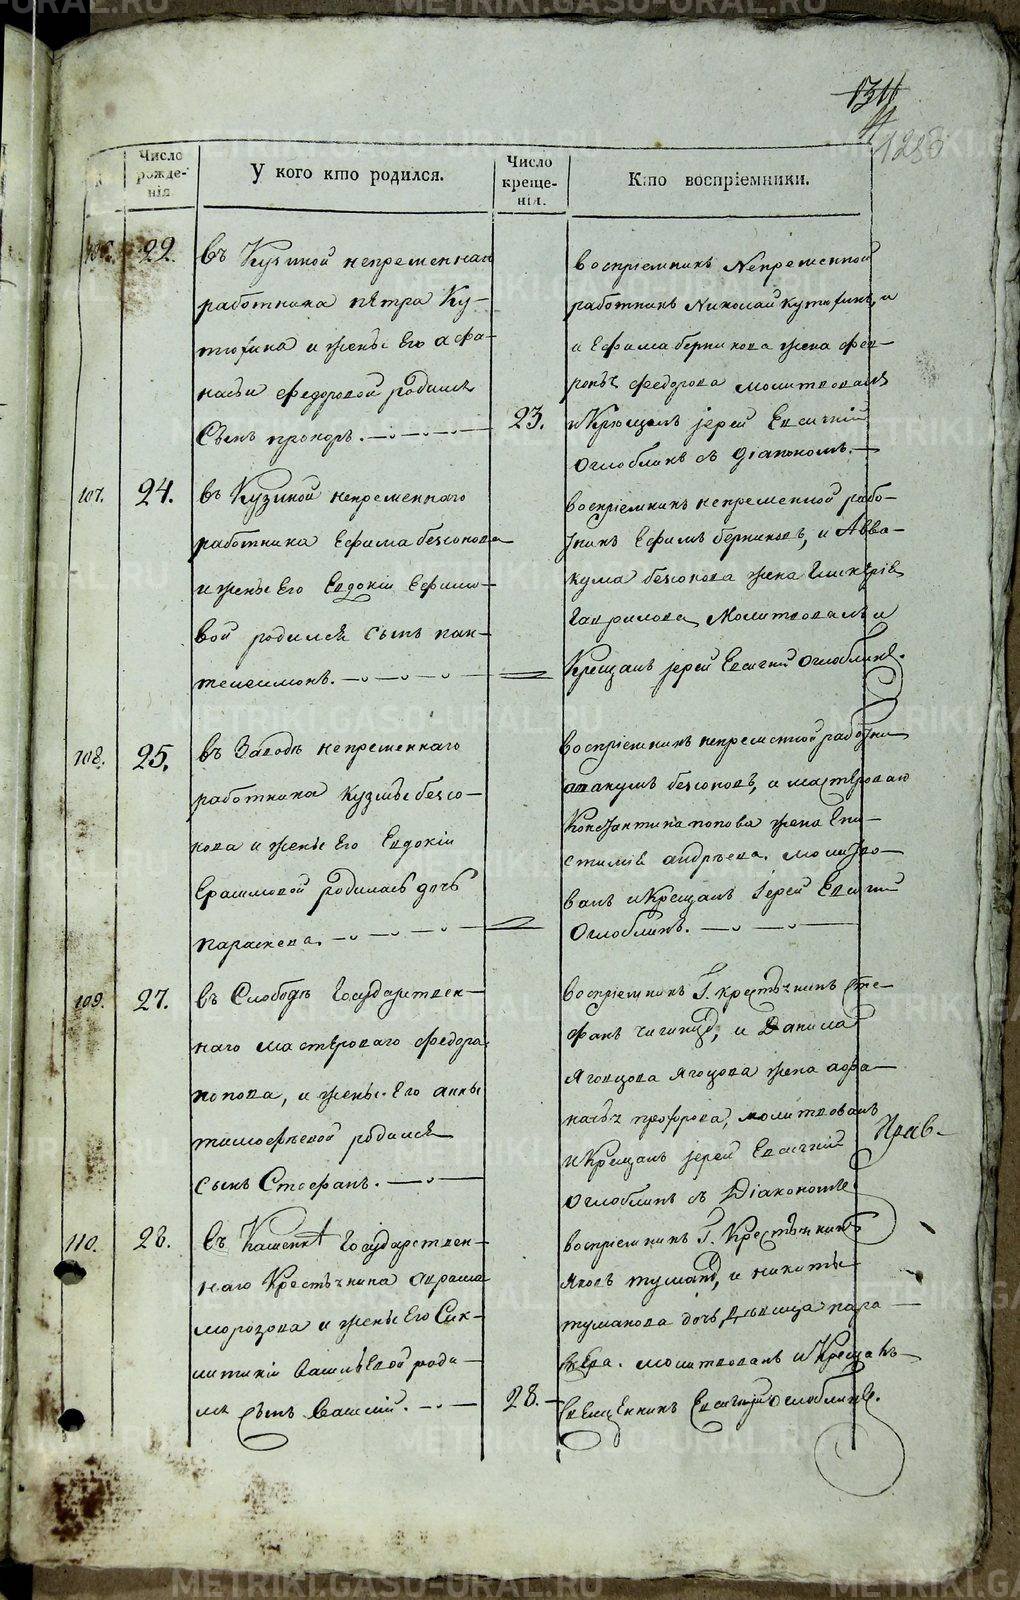 1250
Число рожде-нія
У кого кто родился.
Число креще-нія.
Кто воспріемники.
22.
въ Кузиной непременнаго
работника петра Ку-
тюхина и жены Его афа-
насьи федоровой родился
Сынъ прохоръ.
воспріемникъ Непременной
работникъ Николай кутюхинъ, и
и Ефима берникова жена фев-
ронья федорова молитвовалъ
23.
и Крещалъ іерей Евсигній
Оглоблинъ съ діакономъ.
107.
24.
въ Кузиной непременнаго
работника Ефима безсонова
и жены Его Евдокіи Ефимо-
вой родился сынъ пан-
телеимонъ.
воспріемникъ непременной рабо-
тникъ Ефимъ берниковъ, и Авва-
кума безсонова жена
Гаврилова, Молитвовалъ и
Крещалъ іерей Евсигній Оглоблинъ.
108.
25.
въ Заводѣ непременнаго
работника кузмы безсо-
нова и жены Его Евдокіи
родилась дочь
параскева.
воспріемникъ непременной работник
авакумъ безсоновъ, и мастероваго
Константина попова жена Епи-
стимія андрѣева. молитво-
валъ и Крещалъ Іерей Евсигній
Оглоблинъ.
109.
27.
въ Слободѣ Государствен-
наго мастероваго федора
попова, и жены Его анны
тимофѣевой родился
сынъ Стефанъ.
воспріемникъ Г. крестьянинъ Сте-
фанъ и Данила
Яговцова жена афа-
насья молитвовалъ
и Крещалъ іерей Евсигній
Оглоблинъ съ Діакономъ.
110.
28.
въ Государствен-
наго Крестьянина авраама
морозова и жены Его Син-
клитикіи Васильевой роди-
лся Сынъ Василій.
воспріемникъ Г. Крестьянинъ
Яковъ и никиты
туманова дочь дѣвица пара-
скева. молитвовалъ и Крещалъ
28.
Священникъ Евсигній Оглоблинъ.
METRIKI.GASO-URAL.RU